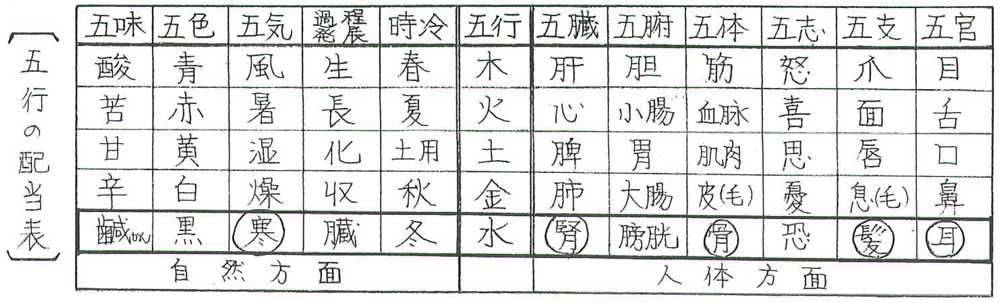 五行の配当表
五味 五色 五気 発展過程 時冷 五行 五臓 五腑 五体 五志 五支 五官
酸 青 風 生 春 木 肝 胆 筋 怒 爪 目
苦 赤 暑 長 夏 火 心 小腸 血脉 喜 面 舌
甘 黄 湿 化 土用 土 脾 胃 肌肉 思 唇 口
辛 白 燥 収 秋 金 肺 大腸 皮(毛) 憂 息(毛) 鼻
鹹かん 黒 寒 臓 冬 水 腎 膀胱 骨 恐 髪 耳
自然方面 人体方面